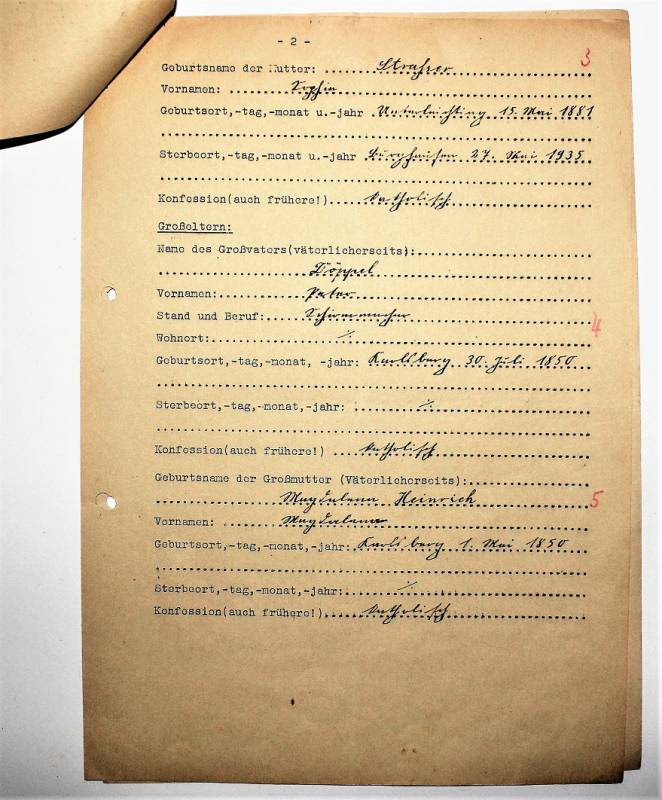 - 2 -
3
Geburtsname der Mutter: Straßer
Vornamen: Sophie
Geburtsort,-tag,-monat u.-jahr Unterleichting 15. Mai 1881
Sterbeort,-tag,-monat u.-jahr Burghausen 27. Mai 1935
Konfession(auch frühere!) katholisch
Großeltern:
Name des Großvaters(väterlicherseits):
Döppel
Vornamen: Peter
Stand und Beruf: Schirmmacher
4
Wohnort: ./.
Geburtsort,-tag,-monat, -jahr: Karlsberg 30. Juli 1850
Sterbeort,-tag,-monat,-jahr: ./.
Konfession(auch frühere!) katholisch
Geburtsname der Großmutter (Väterlicherseits):
Magdalena Heinrich 5
Vornamen: Magdalena
Geburtsort,-tag,-monat,-jahr: Karlsberg 1. Mai 1850
Sterbeort,-tag,-monat,-jahr: ./.
Konfession(auch frühere!) katholisch